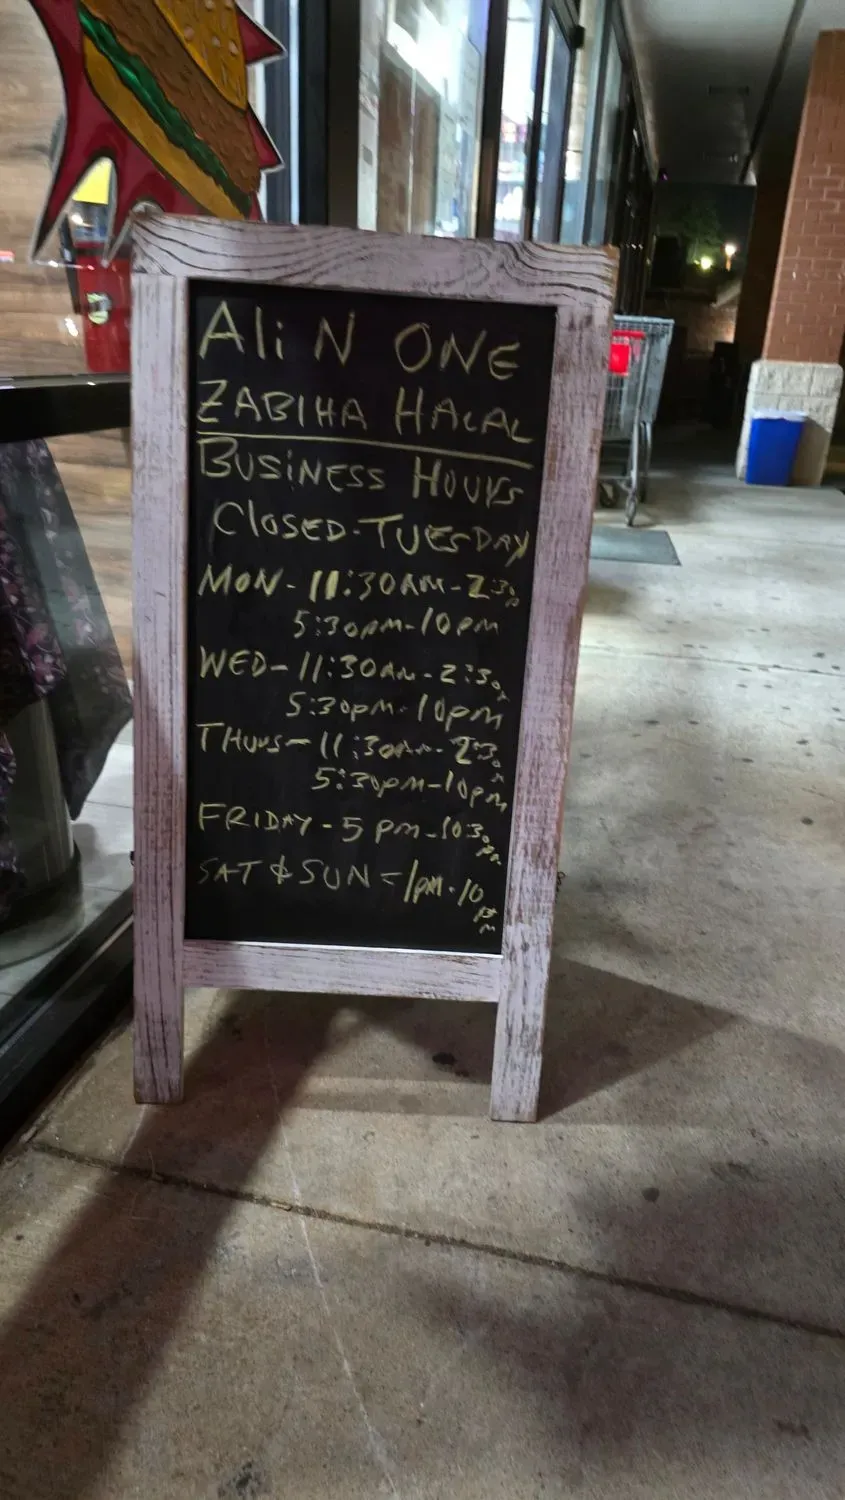 Ali N ONE
ZABIHA HALAL
BUSINESS HOURS
CLOSED-TUESDAY
MON- 11:30AM-2:30
5:30PM-10PM
WED- 11:30AM-2:30
5:30PM-10PM
THURS- 11:30AM-2:30
5:30PM-10PM
FRIDAY-5PM-1030PM
SAT & SUN=1PM-10PM